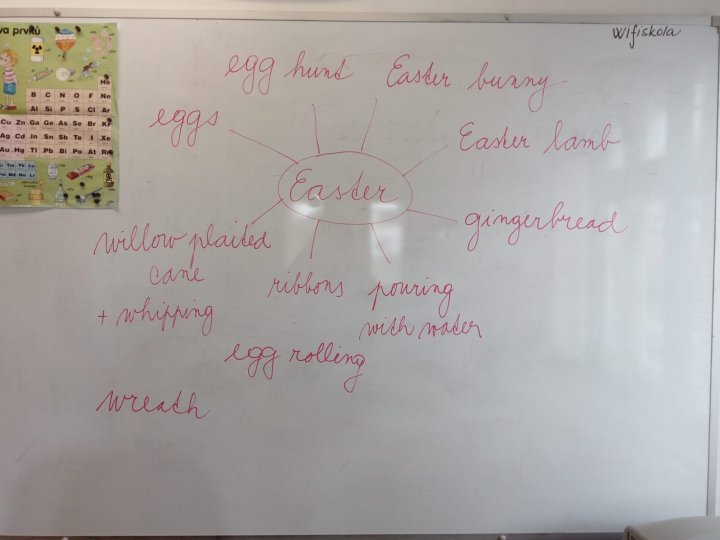 va prvků
Wifiskola
He
B C N O F Ne
Al Si P S Cl Ar
Cu Zn Ga Ge As Se Br Kr
Ag Cd In Sn Sb Te I Xe
Au Hg Tl Pb Bi Po At Rn
Tm Yb Lu
Md No Lr
egg hunt
Easter bunny
eggs
Easter lamb
Easter
gingerbread
willow plaited
cane
+ whipping
ribbons
pouring
with water
egg rolling
wreath